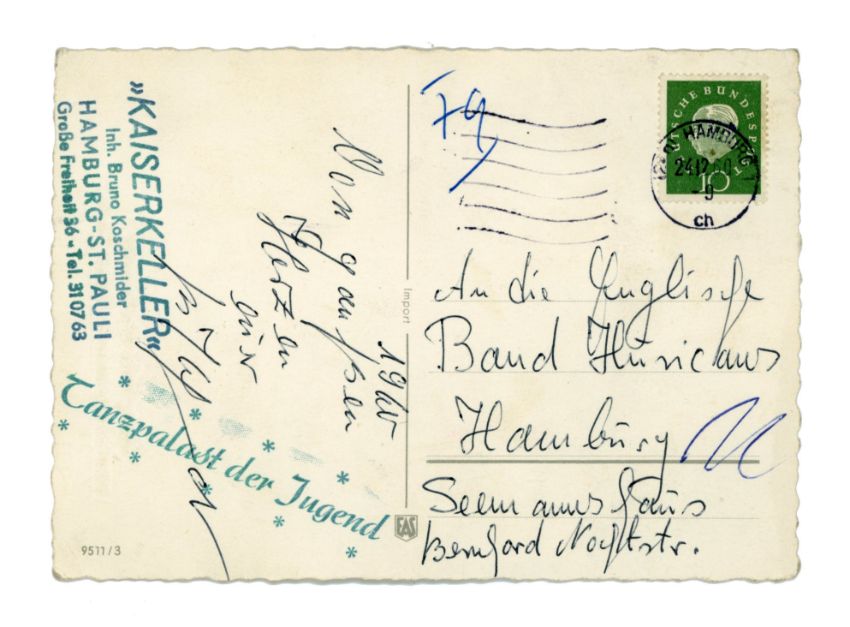 »KAISERKELLER«
Inh. Bruno Koschmider
HAMBURG-ST. PAULI
Große Freiheit 36 · Tel. 31 07 63
Von ganßen
Herzen
eur
1960
Tanzpalast der Jugend
9511/3
Import
EAS
DEUTSCHE BUNDESPOST
10
HAMBURG 1
24.12.60-9
ch
An die Englische
Band Musicians
Hamburg
Seemannshaus
Bernhard Nochtstr.